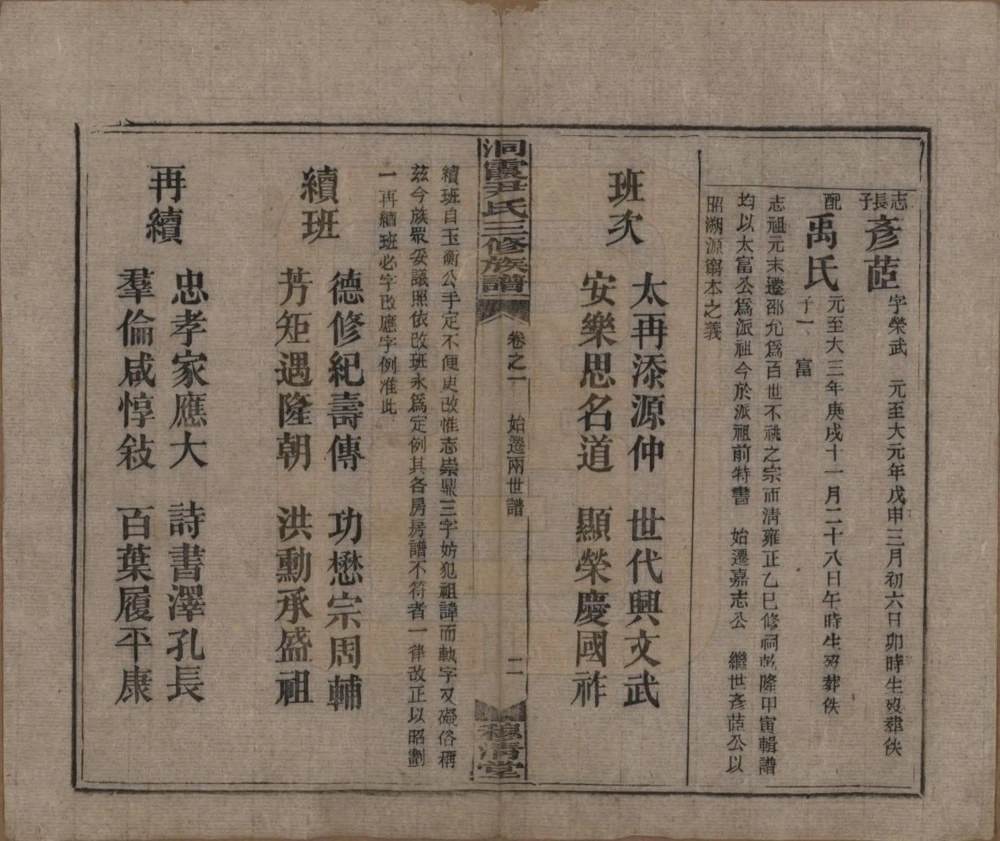 志長子 彥茝 字榮武 元至大元年戊申三月初六日卯時生歿葬佚
配 禹氏 元至大三年庚戌十一月二十八日午時生歿葬佚
子一 富
志祖元末遷邵允爲百世不祧之宗而清雍正乙巳修祠乾隆甲寅輯譜
均以太富公爲派祖今於派祖前特書 始遷嘉志公 繼世彥茝公以
昭溯源窮本之義
班次
太再添源仲 世代興文武
安樂思名道 顯榮慶國祚
洞霞尹氏三修族譜 卷之一 始遷兩世譜 二 穆清堂
續班自玉衡公手定不便更改惟志崇鼎三字妨犯祖諱而執字又礙俗稱
茲今族眾妥議照依改班永爲定例其各房房譜不符者一律改正以昭劃
一再續班必字改應字例准此
續班
德修紀壽傳 功懋宗周輔
芳矩遇隆朝 洪勳承盛祖
再續
忠孝家應大 詩書澤孔長
羣倫咸惇敍 百葉履平康